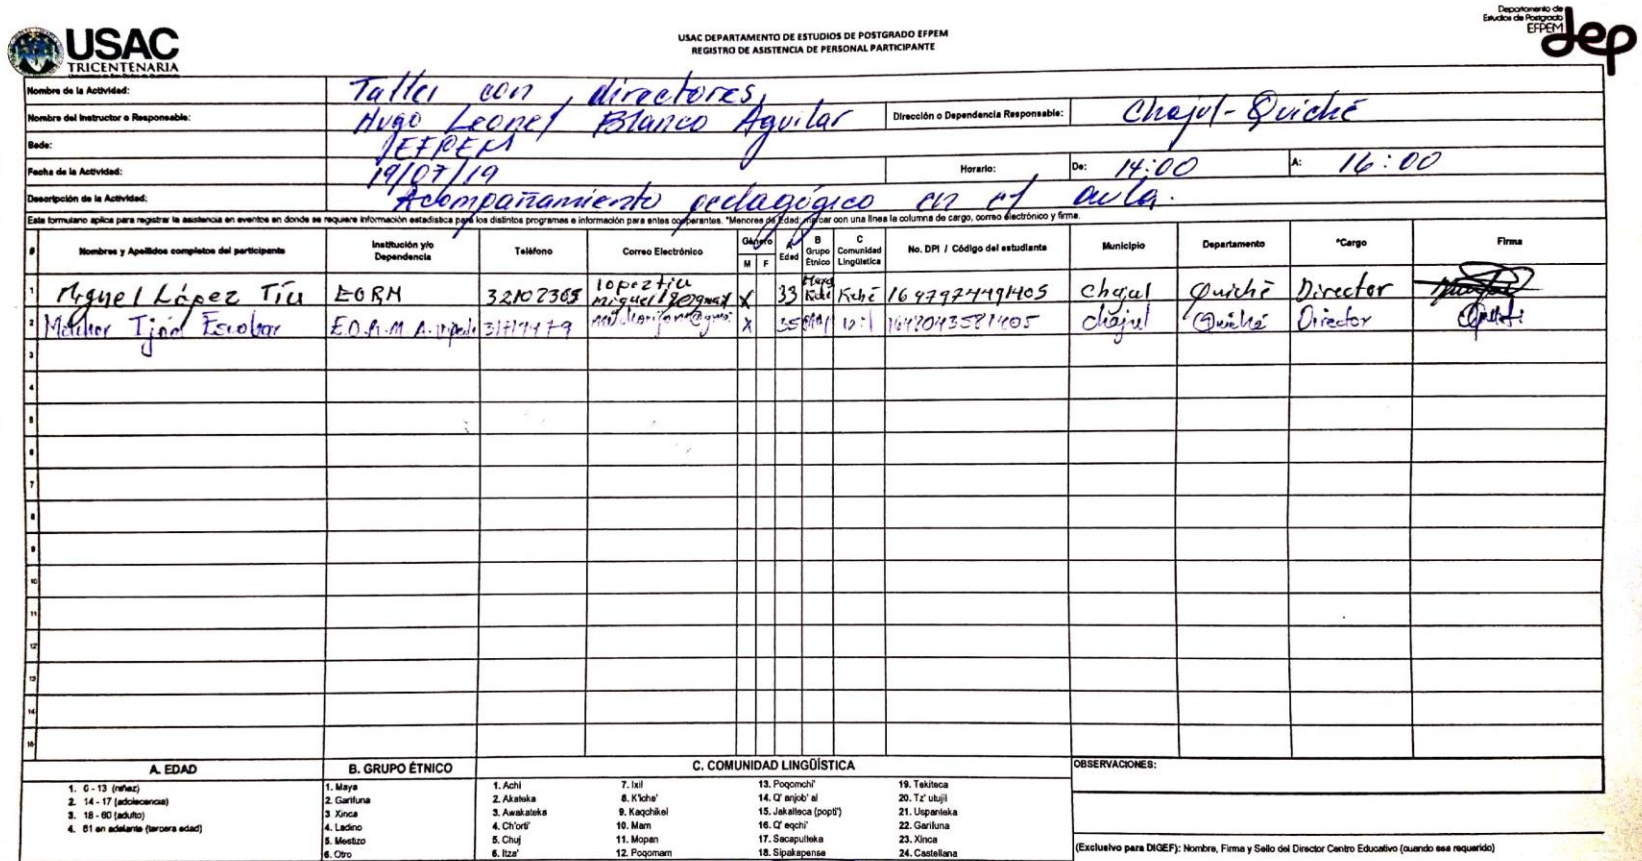 USAC
TRICENTENARIA
USAC DEPARTAMENTO DE ESTUDIOS DE POSTGRADO EFPEM
REGISTRO DE ASISTENCIA DE PERSONAL PARTICIPANTE
Departamento de
Estudios de Postgrado
EFPEM
dep
Nombre de la Actividad: Taller con directores,
Nombre del Instructor o Responsable: Hugo Leonel Blanco Aguilar Dirección o Dependencia Responsable: Chajul-Quiché
Sede:
Fecha de la Actividad: 19/07/19 Horario: De: 14:00 A: 16:00
Descripción de la Actividad: Acompañamiento pedagógico en el aula.
Este formulario aplica para registrar la asistencia en eventos en donde se requiere información estadística para los distintos programas e información para entes cooperantes. *Menores de Edad; marcar con una línea la columna de cargo, correo electrónico y firma.
# Nombres y Apellidos completos del participante Institución y/o Dependencia Teléfono Correo Electrónico Género M F A Edad B Grupo Étnico C Comunidad Lingüística No. DPI / Código del estudiante Municipio Departamento *Cargo Firma
1 Miguel López Tíu EORM 32102365 lopeztiu X 33 Kché 1647974491405 Chajul Quiché Director
2 Melchor Tjón Escobar E.O.R.M X 35 1642043581405 chajul Quiché Director
3
4
5
6
7
8
9
10
11
12
13
14
15
A. EDAD
1. 0 - 13 (niñez)
2. 14 - 17 (adolecencia)
3. 18 - 60 (adulto)
4. 61 en adelante (tercera edad)
B. GRUPO ÉTNICO
1. Maya
2. Garifuna
3 Xinca
4. Ladino
5. Mestizo
6. Otro
C. COMUNIDAD LINGÜÍSTICA
1. Achi
2. Akateka
3. Awakateka
4. Ch'orti'
5. Chuj
6. Itza'
7. Ixil
8. K'iche'
9. Kaqchikel
10. Mam
11. Mopan
12. Poqomam
13. Poqomchi'
14. Q' anjob' al
15. Jakalteca (popti')
16. Q' eqchi'
17. Sacapulteka
18. Sipakapense
19. Tekiteca
20. Tz' utujil
21. Uspanteka
22. Garifuna
23. Xinca
24. Castellana
OBSERVACIONES:
(Exclusivo para DIGEF): Nombre, Firma y Sello del Director Centro Educativo (cuando sea requerido)